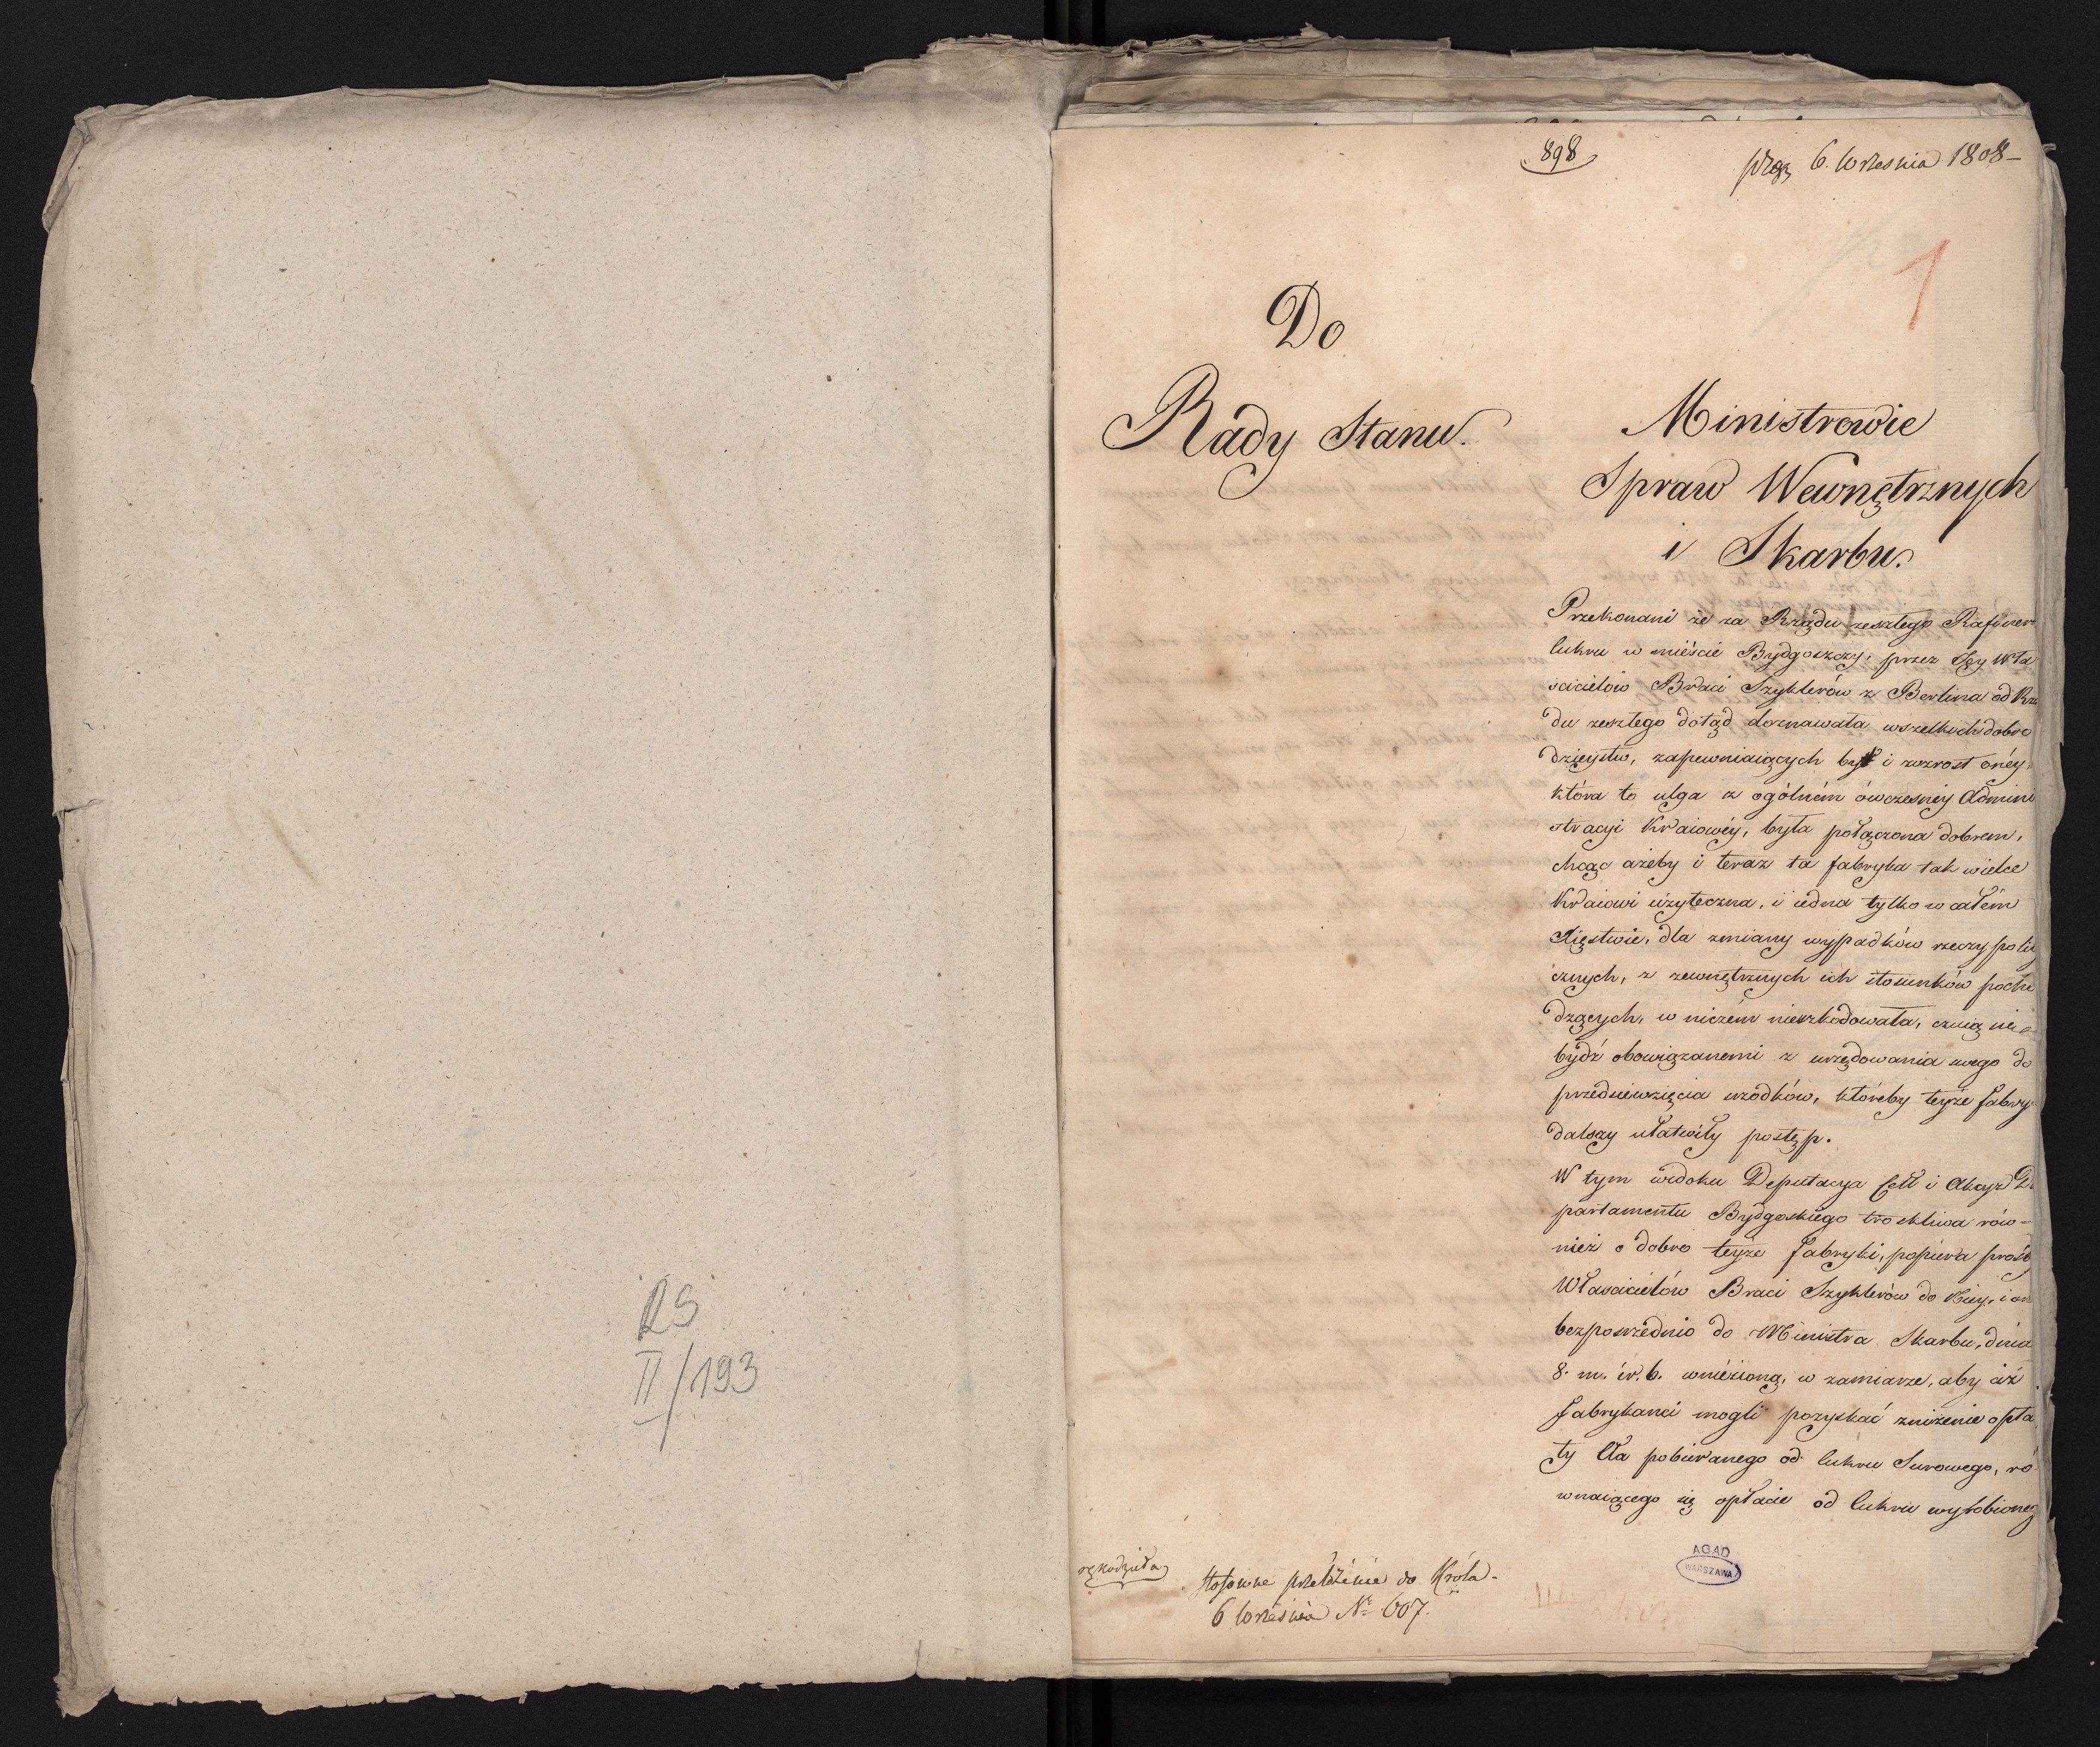 RS
II/193
898
6. Września 1808
1
Do
Rady Stanu.
Ministrowie
Spraw Wewnętrznych
i Skarbu.
Przekonani że za Rządu zeszłego Rafiner
Cukru w mieście Bydgoszczy, przez Jey Wła
ścicielów Braci Szyklerów z Berlina od Rzą
du zeszłego dotąd doznawała wszelkich dobro
dzieystw, zapewniaiących byt i wzrost onéy,
która to ulga z ogólném ówczesnéy Admini
stracyi Kraiowéy, była połączona dobrem,
chcąc ażeby i teraz ta fabryka tak wielce
Kraiowi użyteczna, i iedna tylko w całém
Xięstwie, dla zmiany wypadków rzeczy polity
cznych, z zewnętrznych ich stosunków pocho
dzących, w niczém nieszkodowała, czuią się
bydź obowiązanemi z urzędowania swego do
przedsiewzięcia środków, któreby teyże fabry
dalszy ułatwiły postęp.
W tym widoku Deputacya Ceł i Akcyz De
partamentu Bydgoskiego troskliwa rów-
nież o dobro teyże fabryki, popiera proźb
Właścicielów Braci Szyklerów do Niey, i
bezpośrzednio do Ministra Skarbu, dnia
8. m. i r. b. wniesioną, w zamiarze, aby ciż
fabrykanci mogli pozyskać zniżenie opła
ty Cła pobieranego od Cukru Surowego, ró
wnaiącego się opłacie od Cukru wyrobioneg
rękodzieła
stosowne przełożenie do Króla-
6 Września No 607.
AGAD
WARSZAWA